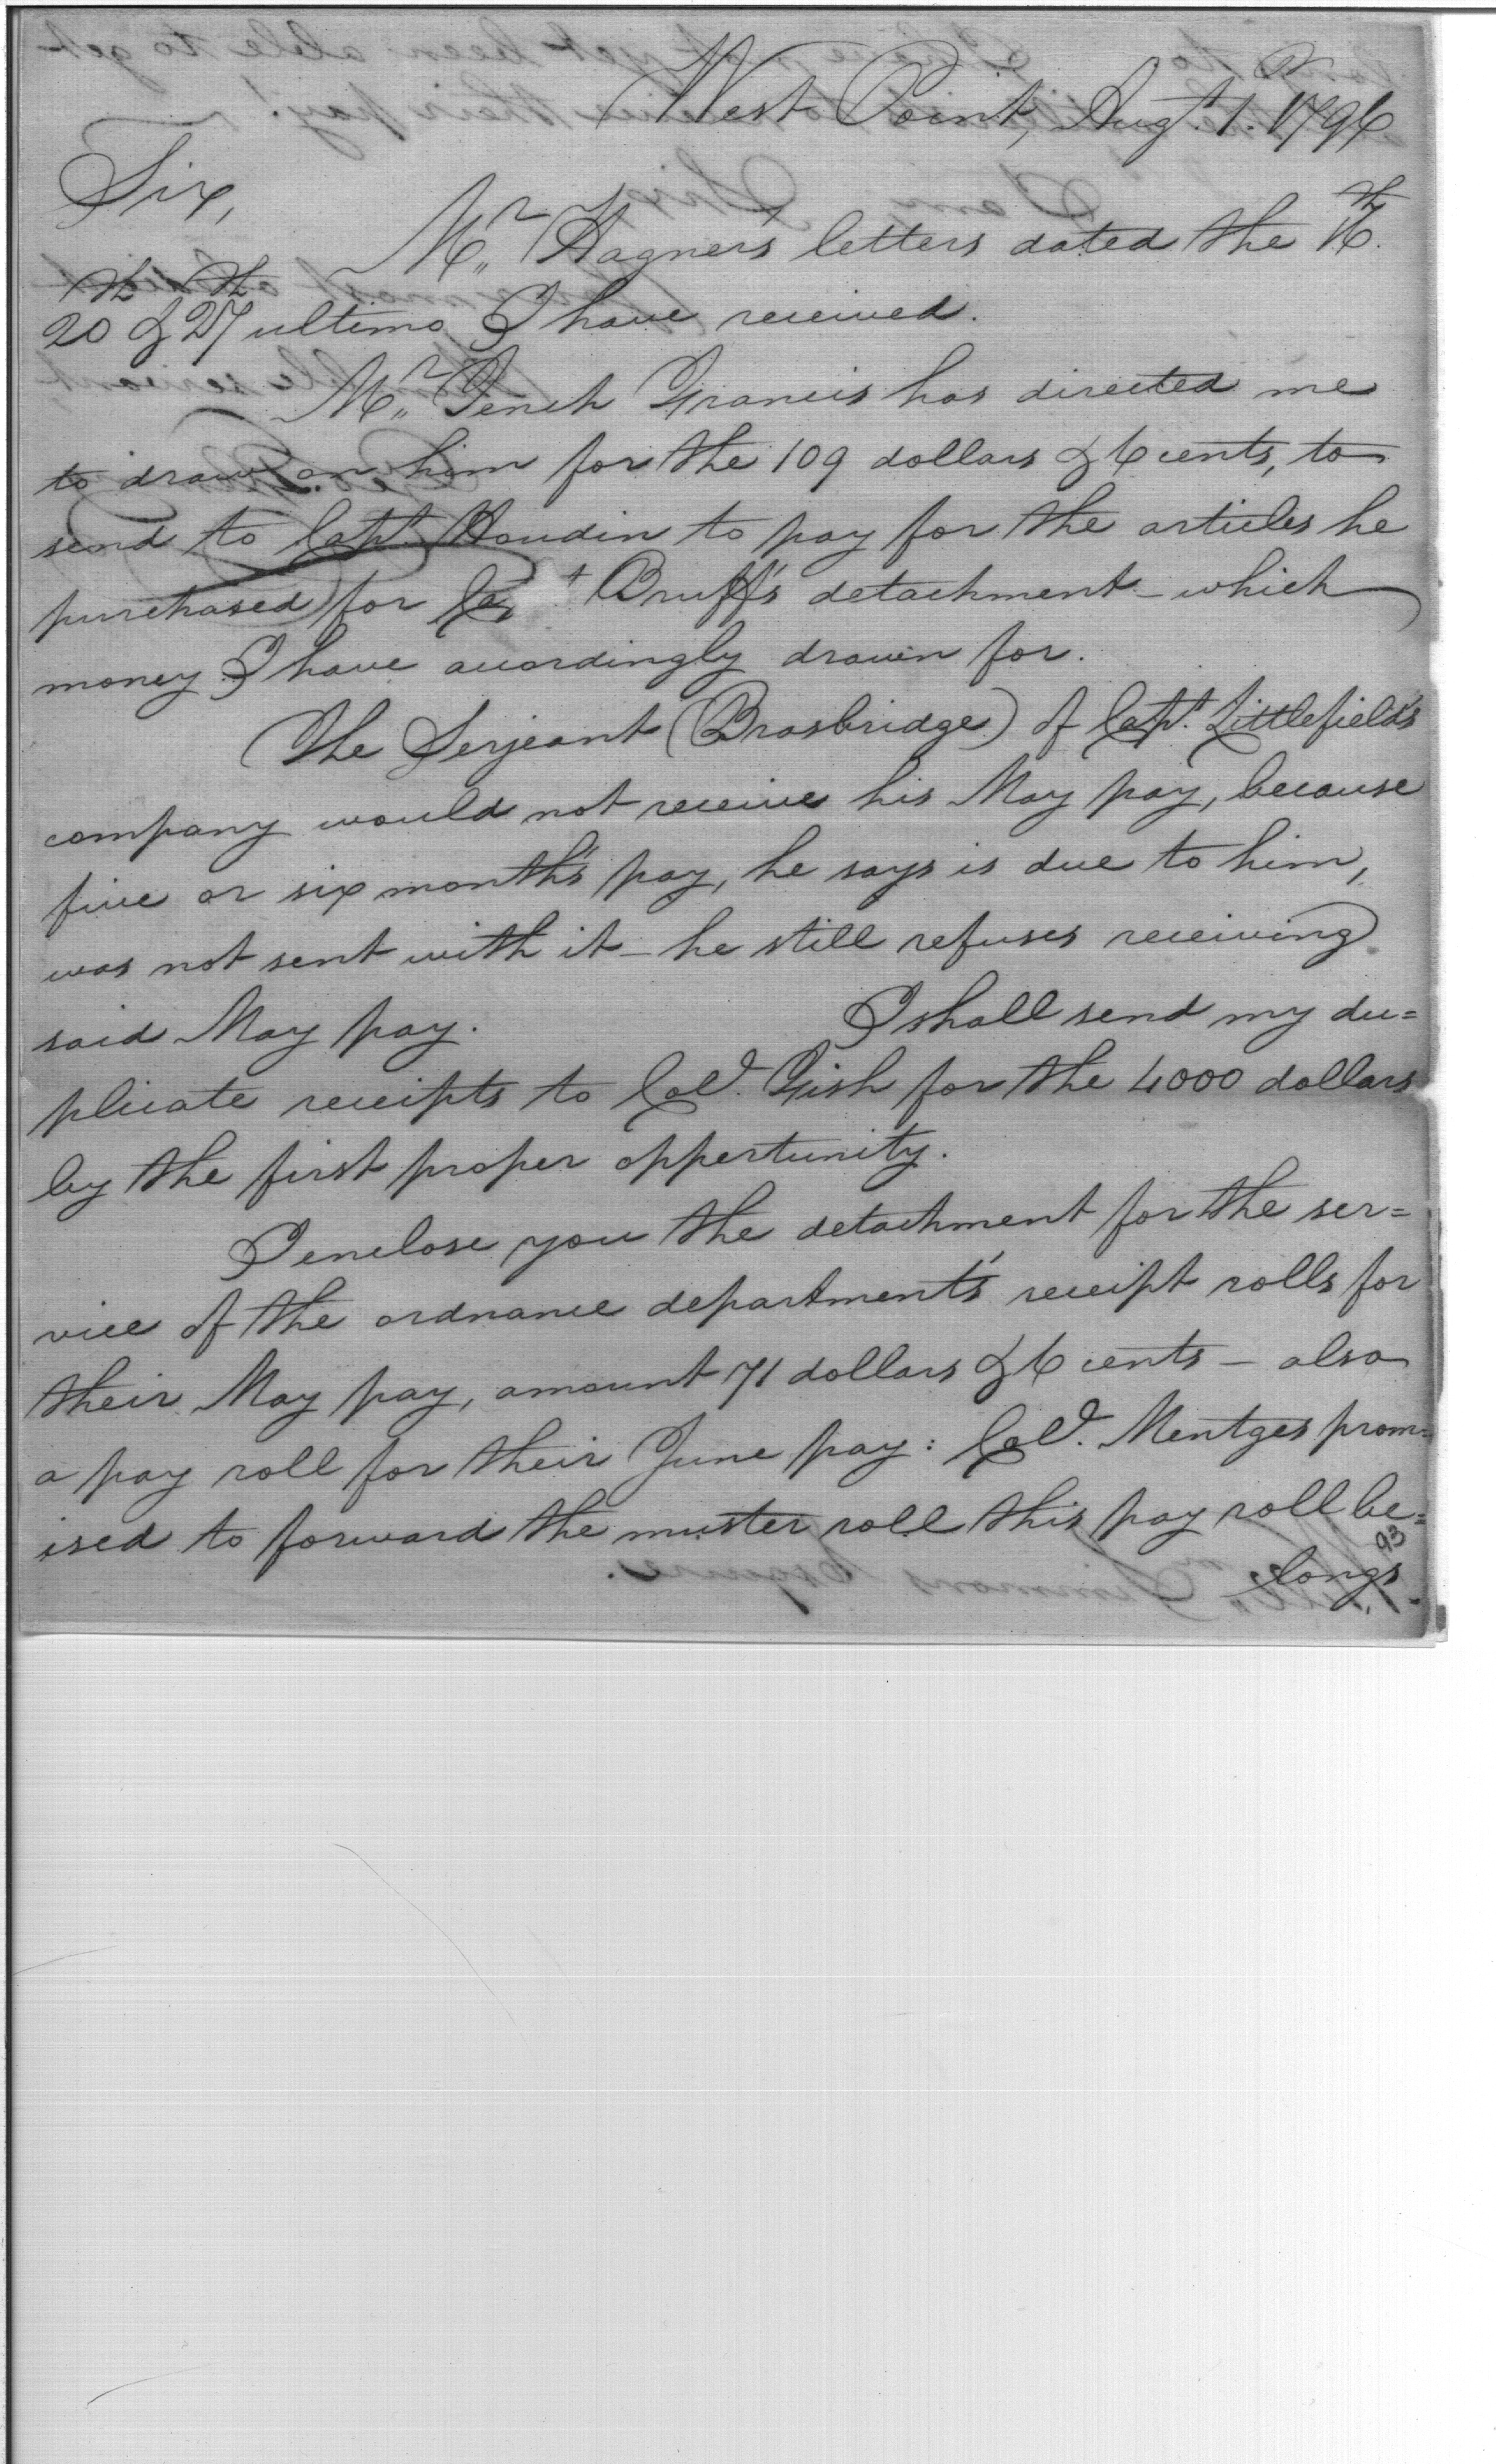 West Point, Augt. 1. 1796
Sir,
Mr. Hagner's letters dated the 16th.
20th & 27th ultimo I have received.
Mr. Tench Francis has directed me
to draw on him for the 109 dollars & 6 cents, to
send to Capt. Houdin to pay for the articles he
purchased for Capt Bruff's detachment - which
money I have accordingly drawn for.
The Serjeant (Brasbridge) of Capt. Littlefield's
company would not receive his May pay, because
five or six month's pay, he says is due to him,
was not sent with it - he still refuses receiving
said May pay. I shall send my du=
plicate receipts to Col. Fish for the 4000 dollars
by the first proper oppertunity.
I enclose you the detachment for the ser=
vice of the ordnance department's receipt rolls for
their May pay, amount 71 dollars & 6 cents - also
a pay roll for their June pay: Col. Mentges prom=
ised to forward the muster roll this pay roll be=
93
longs